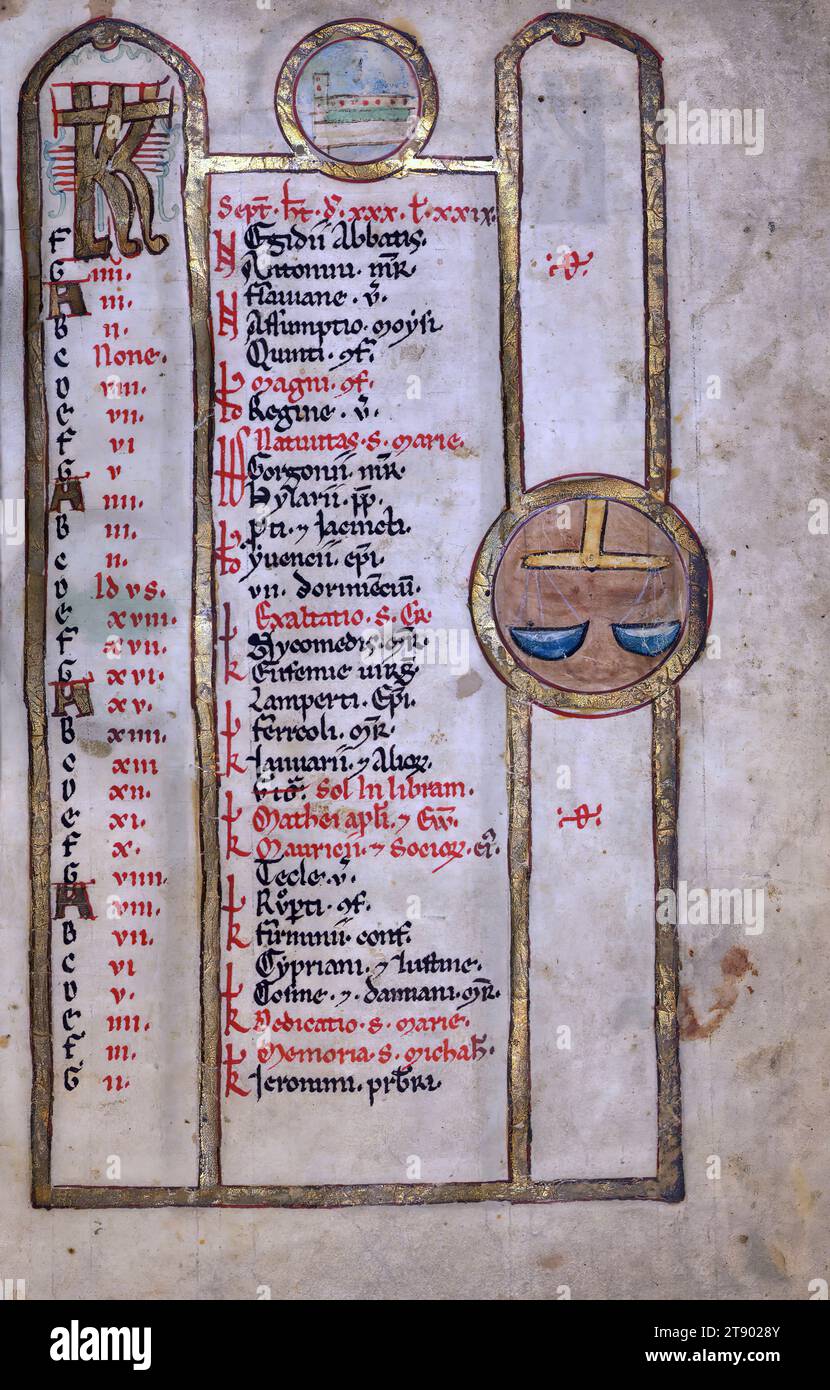 KL
Sept. ht. d. xxx. l. xxix.
f N Egidii Abbatis.
G iiii. Antonini. mr
A iii. N flaviane. v.
B ii. Assumptio. moysi
C None. Quinti. cf.
D viii. magni. cf.
E vii. Regine. v.
f vi Nativitas. s. marie.
G v Gorgonii. mr
A iiii. hylarii. pp.
B iii. pti. 7 Iacincti.
C ii. yvencii. epi.
D Idvs. vii. dormienciu.
E xviii. Exaltatio. s. Cr
f xvii. Nycomedis. mr.
G xvi. k Eufemie virg
A xv. Lamperti. Epi.
B xiiii. ferreoli. mr.
C xiii k Ianuarii. 7 Alior.
D xii. Vig. Sol In libram.
E xi. Mathei apli. 7 Ew.
f x. k Mauricii. 7 Socior. ei.
G viiii. Tecle. v.
A viii. Rvpti. cf.
B vii. k firminii. conf.
C vi Cypriani. 7 Iustine.
D v. Cosme. 7 damiani. mr.
E iiii. k Dedicatio. s. marie.
f iii. Memoria. s. michah.
G ii. k Jeronimi. prbri.
d.
d.
alamy
Image ID: 2T9028Y
www.alamy.com